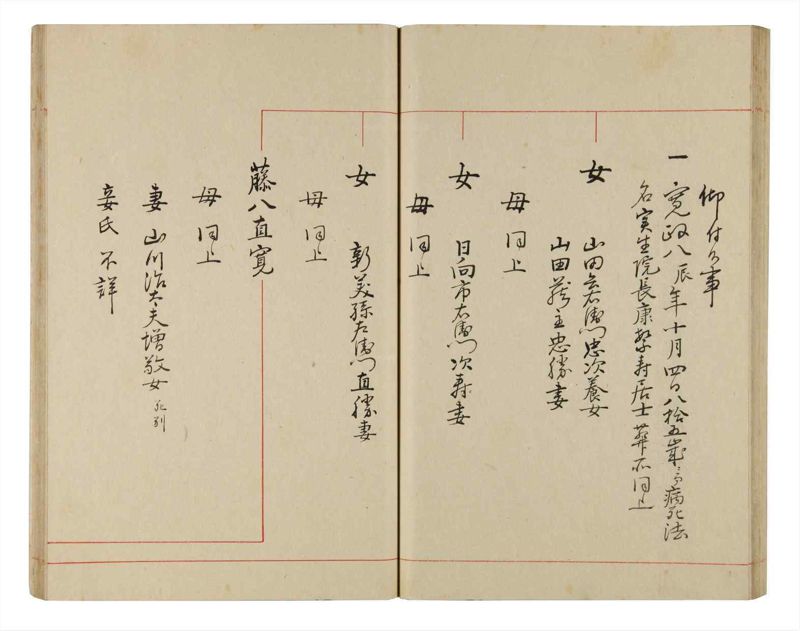 御付候事
一寛政八辰年十月四日八拾五歳ニ而病死法
名实生院長康繁寿居士葬所同上
女
山田喜右衛門忠次養女
山田藤主忠勝妻
母同上
女
日向市右衛門次寿妻
母同上
女
新美孫左衛門直勝妻
母同上
藤八直寛
母同上
妻山川治太夫増敬女 死別
妾氏不詳